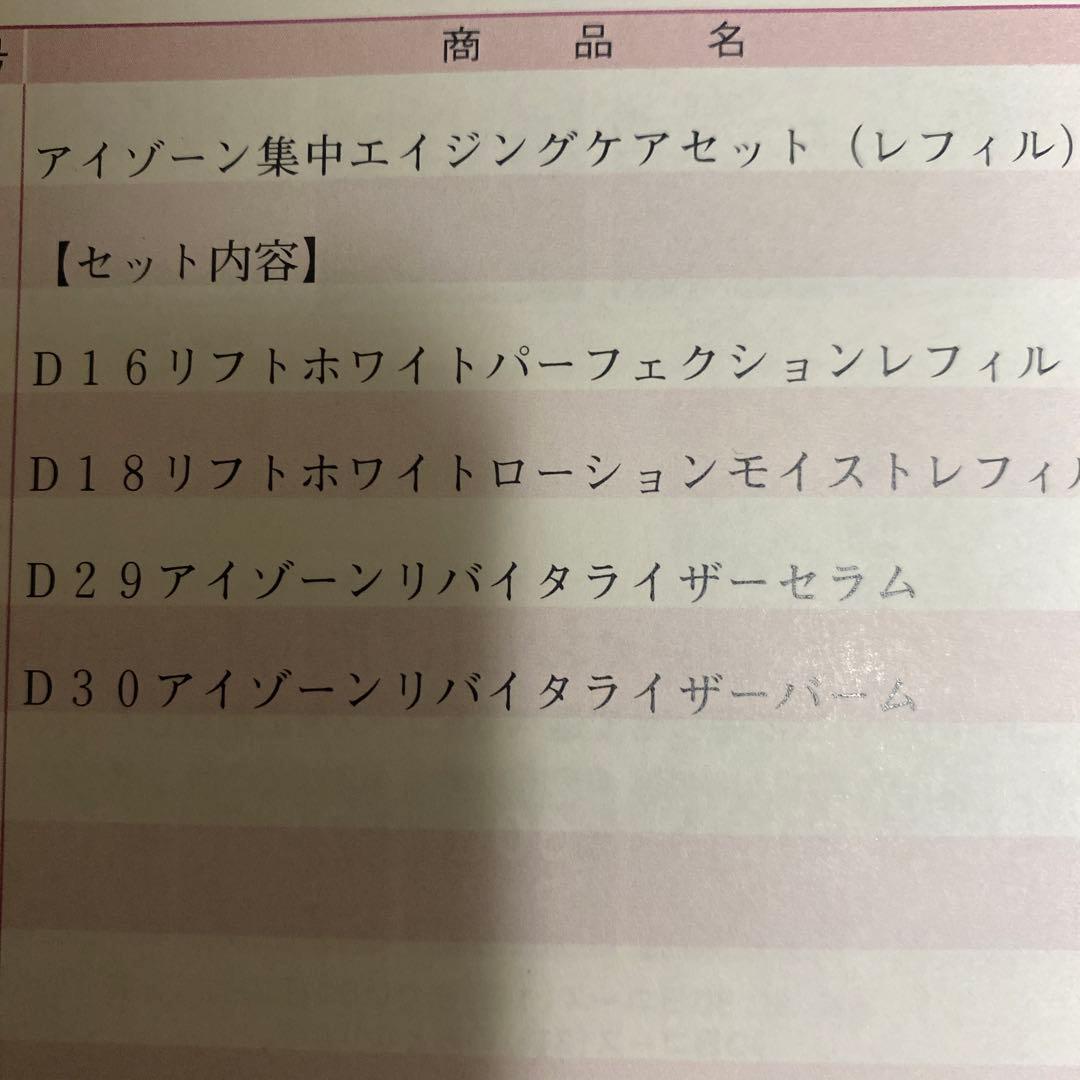 商品名
アイゾーン集中エイジングケアセット（レフィル）
【セット内容】
Ｄ１６リフトホワイトパーフェクションレフィル
Ｄ１８リフトホワイトローションモイストレフィル
Ｄ２９アイゾーンリバイタライザーセラム
Ｄ３０アイゾーンリバイタライザーバーム